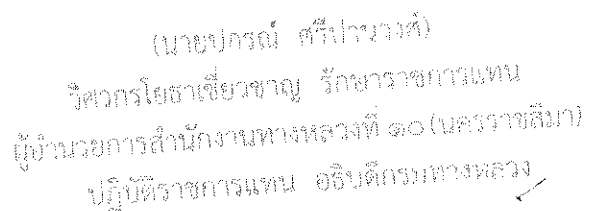 (นายปกรณ์ ศรีปานวงศ์)
วิศวกรโยธาเชี่ยวชาญ รักษาราชการแทน
ผู้อำนวยการสำนักงานทางหลวงที่ ๑๐ (นครราชสีมา)
ปฏิบัติราชการแทน อธิบดีกรมทางหลวง